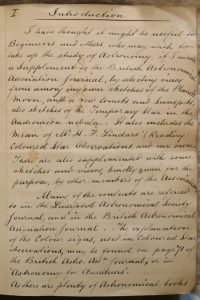 I Introduction
I have thought it might be useful to
Beginners and others who may wish to
take up the study of Astronomy, if I made
a Supplement to the British Astronomical
Association Journal, by selecting views
from among my own sketches of the Planets,
Moon, and a few Comets and Sunspots,
also sketches of the Temporary Star in the
Andromeda nebula. It also includes the
Mean of Mr. H. P. (Reading)
Coloured Star Observations and my own.
These are also supplemented with some
sketches and views, kindly given for the
purpose, by other members of the Association.
Many of the contents are referred
to in the Liverpool Astronomical Society
Journal, and in the British Astronomical
Association Journal. The explanation
of the Colour signs, used in Coloured Star
observations, may be found on page 71 of
the British Astro. Assn. Journal, or in
"Astronomy for Amateurs".
As there are plenty of Astronomical books